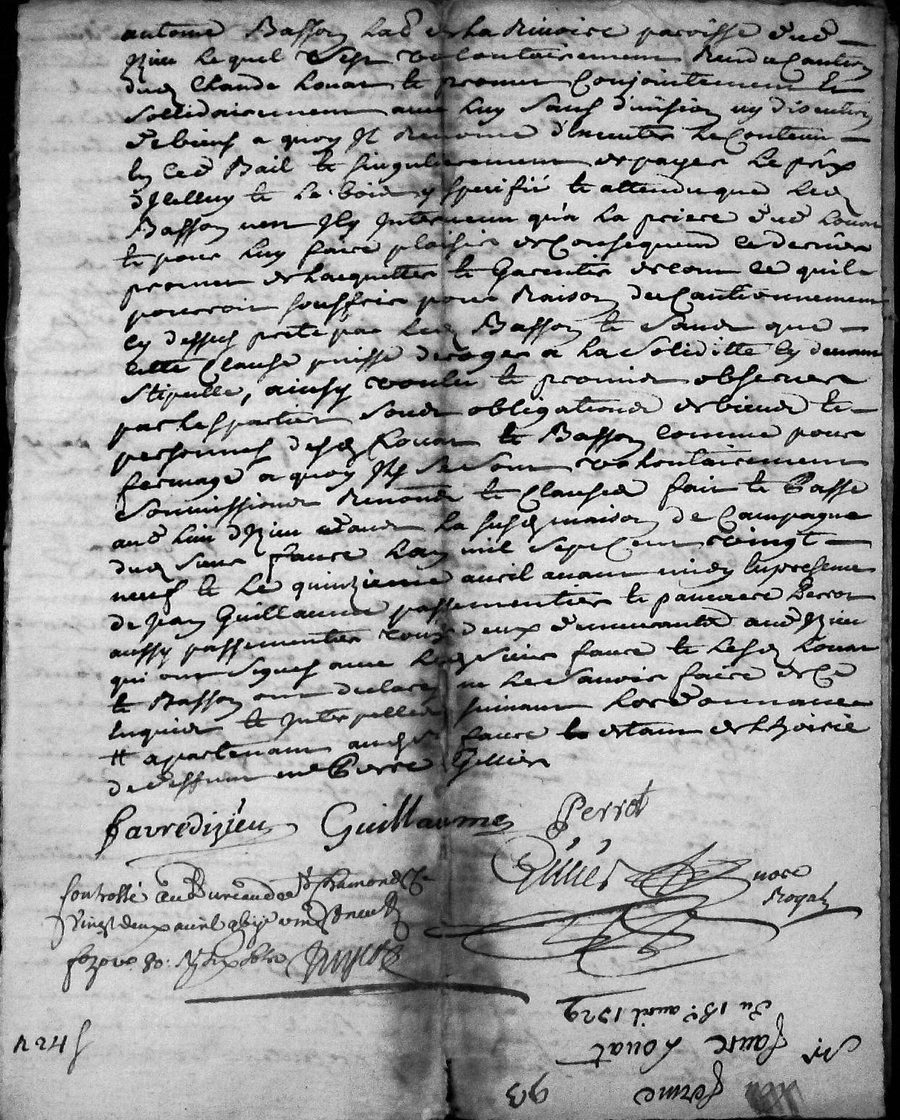 antoine Basson lab de la Rivoire paroisse dud
Izieu lequel sest volontairement Rendu Caution
dud Claude Louat et promet Conjointement et
sollidairement avec luy sans division ny discution
de biens a quoy Il Renonce d'Executer le Contenu
en Ced Bail et singulierement de payer le prix
d'Icelluy et le bois y speciffié et attendu que led
Basson nen Icy Intervenu qua la priere dud Louat
et pour luy faire plaisir de Consequent ce dernier
promet de lacquitter et Garentir de tout ce quil
pourroit souffrir pour Raison du Cautionnement
cy dessus preté par led Basson et sans que
cette Clause puisse deroger a la Soliditte cy devant
stipullé, ainsy voulu et promis observer
par les parties sous obligations de biens et
personnes desd Louat et Basson comme pour
fermage a quoy Ils se sont volontairement
soumissions Renons et Clauses fait et Passé
aud lieu d'Izieu dans la susd maison de Campagne
dud sieur faure Lan mil sept Cent vingt
neuf et le quinzieme avril avant midy en presence
de Jean Guillaume passementier et pancrace Perrot
aussy passementier tous deux demeurants aud Izieu
qui ont signés avec led sieur faure et lesd Louat
et Basson ont declaré ne le sçavoir faire de Ce
Enquis et Interpellés suivant lordonnance
# apartenant aud sr faure et estant de lhoirie
de deffunt me Pierre Gillier
favredizieu Guillaume Perrot
Gillier nore
Royal
Controllé au Bureau de St Chamond Ce
Vingt deux avril 
R 24 s
Du 15e avril 1729
faure Louat
ferme 93